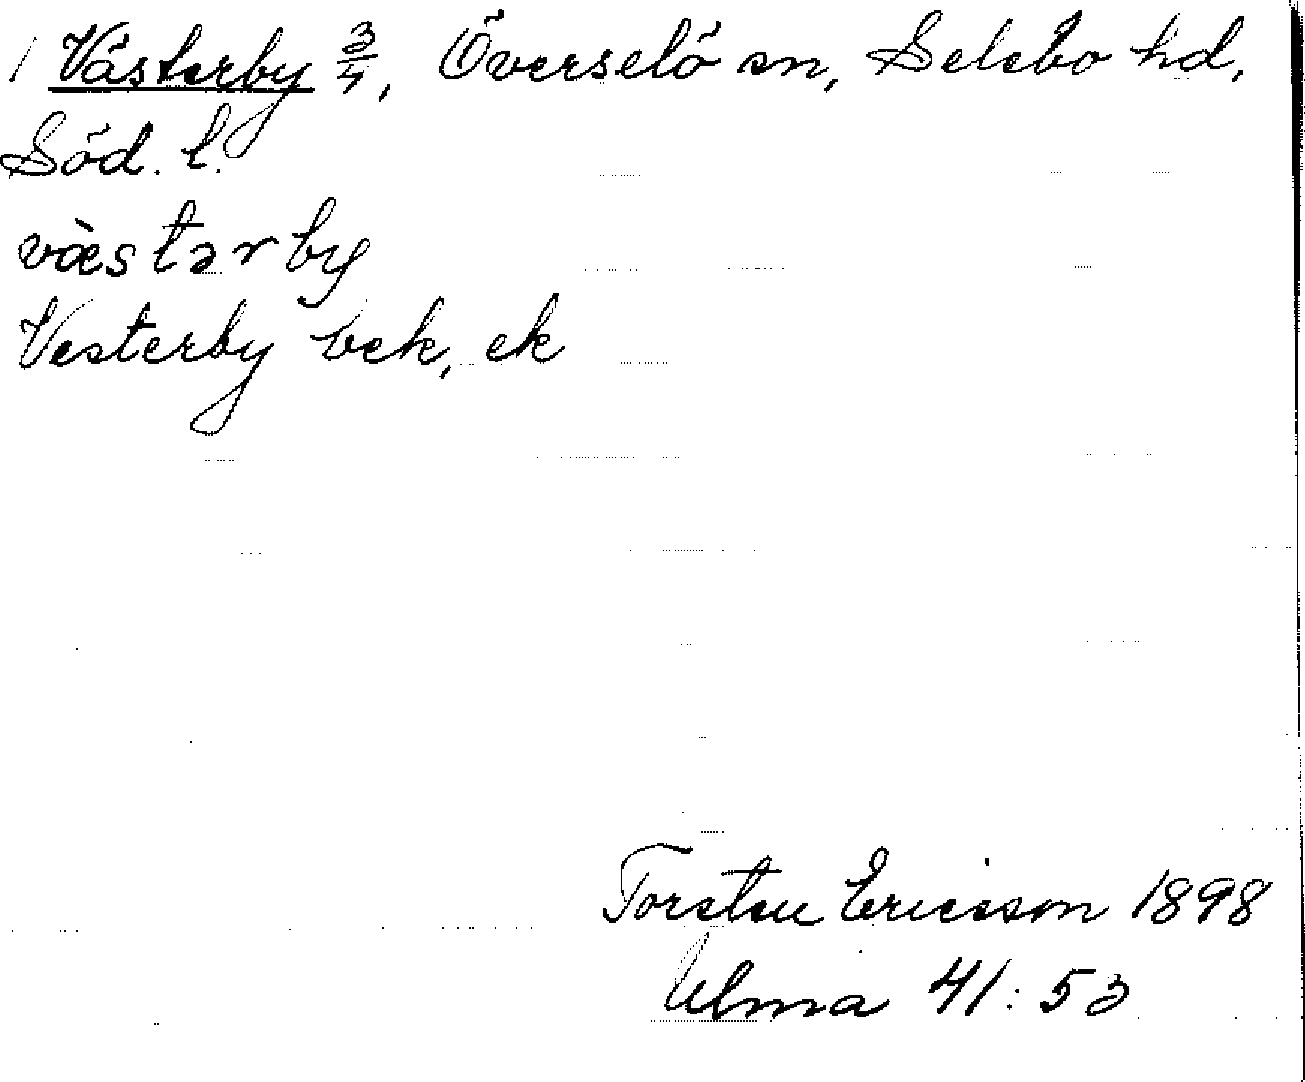 Västerby 3/4, Överselö sn, Selebo hd,
Söd. l.
væ̀stərby
Vesterby bek, ek
Torsten Ericsson 1898
Ulma 41:53